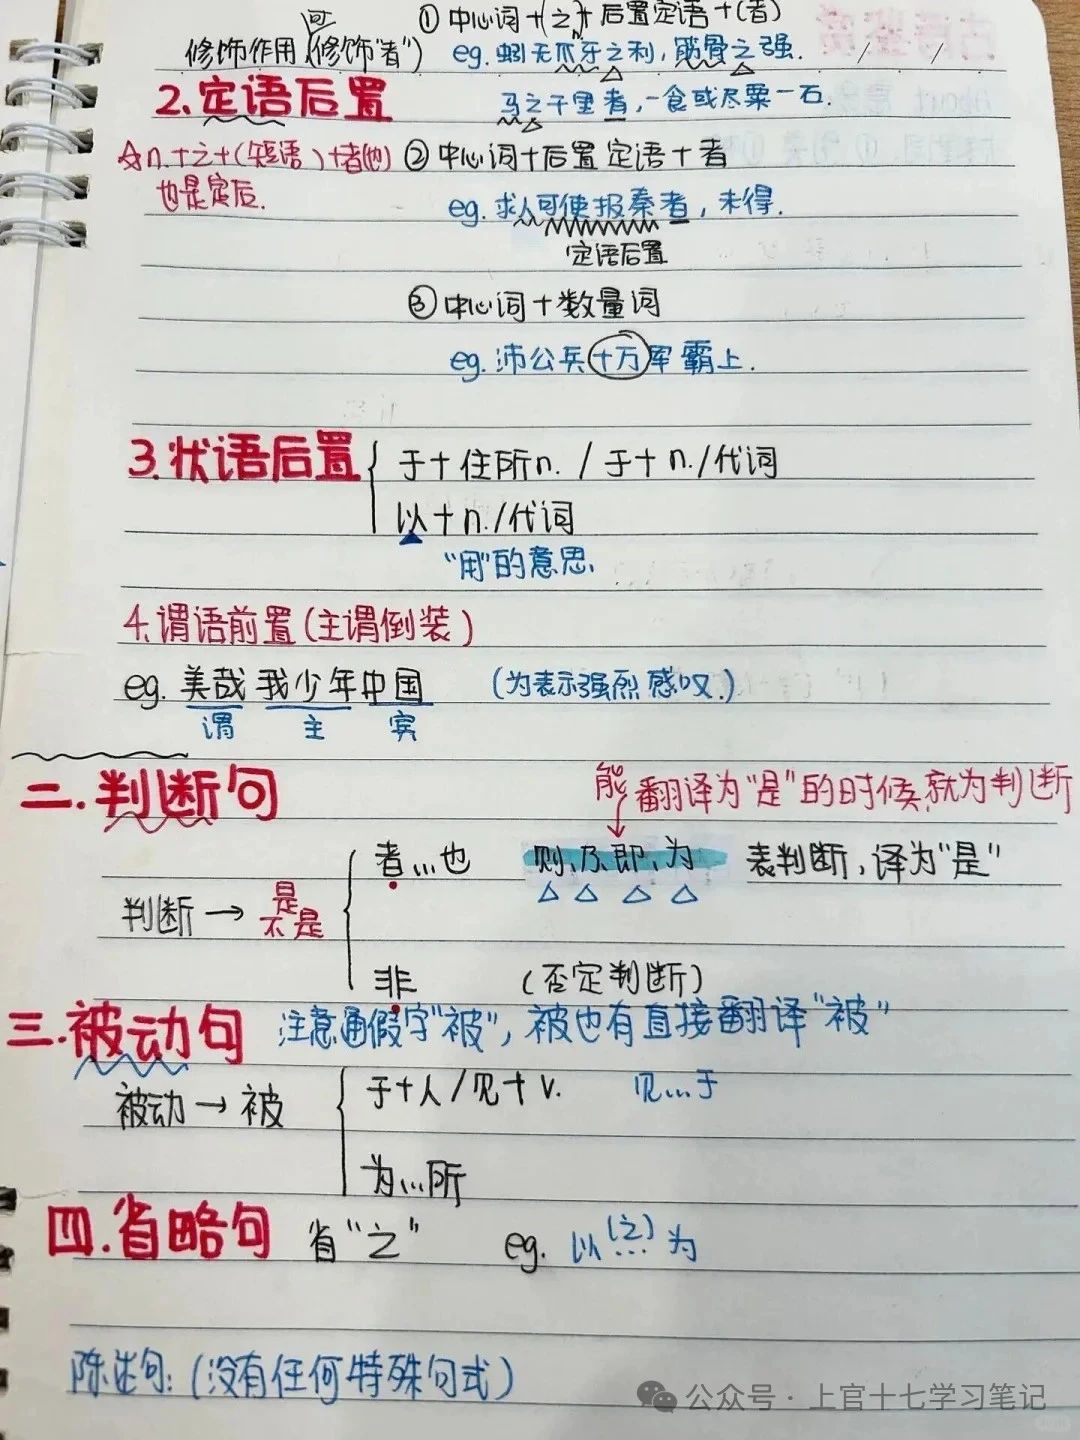 ① 中心词+(之)+后置定语+(者)
可
修饰作用(修饰"者") eg.蚓无爪牙之利,筋骨之强.
2.定语后置 马之千里者,一食或尽粟一石.
☆n.+之+(短语)+者(也) ② 中心词+后置定语+者
也是定后.
eg.求人可使报秦者,未得.
定语后置
③ 中心词+数量词
eg.沛公兵十万军霸上.
3.状语后置 于+住所n./于+n./代词
以+n./代词
"用"的意思.
4.谓语前置(主谓倒装)
eg.美哉我少年中国 (为表示强烈感叹.)
谓 主 宾
二.判断句 能翻译为"是"的时候,就为判断
者...也 则、乃、即、为 表判断,译为"是"
判断→是
不是
非 (否定判断)
三.被动句 注意通假字"被",被也有直接翻译"被"
被动→被 于+人/见+v. 见...于
为...所
四.省略句 省"之" eg.以(之)为
...
陈述句:(没有任何特殊句式)
公众号·上官十七学习笔记